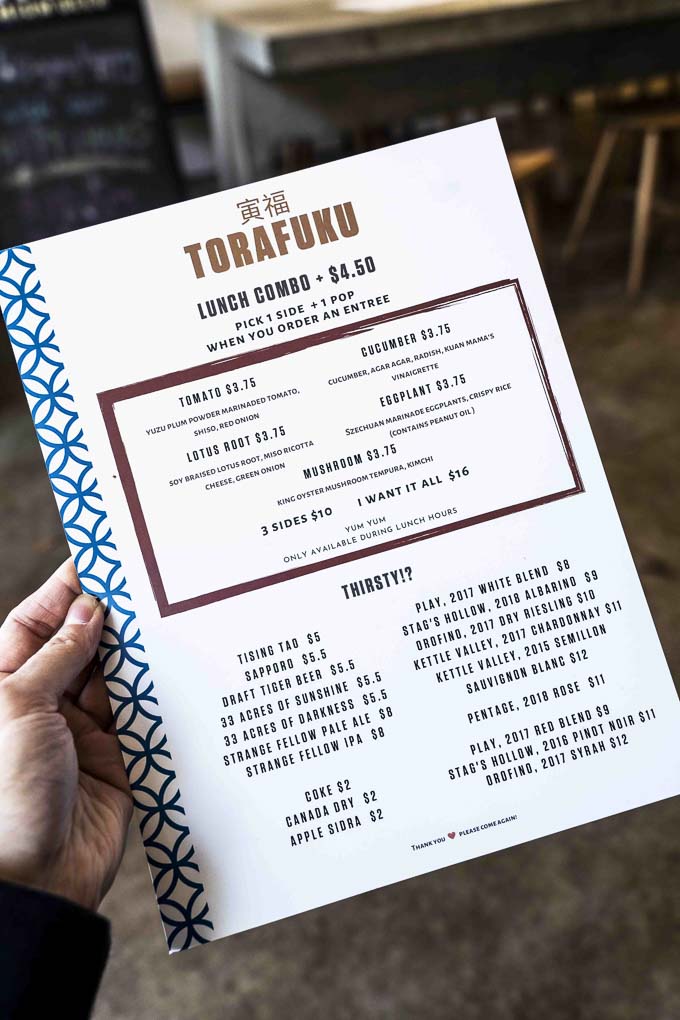 寅福
TORAFUKU
LUNCH COMBO + $4.50
PICK 1 SIDE + 1 POP
WHEN YOU ORDER AN ENTREE
TOMATO $3.75
YUZU PLUM POWDER MARINADED TOMATO,
SHISO, RED ONION
LOTUS ROOT $3.75
SOY BRAISED LOTUS ROOT, MISO RICOTTA
CHEESE, GREEN ONION
CUCUMBER $3.75
CUCUMBER, AGAR AGAR, RADISH, KUAN MAMA'S
VINAIGRETTE
EGGPLANT $3.75
SZECHUAN MARINADE EGGPLANTS, CRISPY RICE
(CONTAINS PEANUT OIL)
MUSHROOM $3.75
KING OYSTER MUSHROOM TEMPURA, KIMCHI
3 SIDES $10 I WANT IT ALL $16
YUM YUM
ONLY AVAILABLE DURING LUNCH HOURS
THIRSTY!?
TISING TAO $5
SAPPORO $5.5
DRAFT TIGER BEER $5.5
33 ACRES OF SUNSHINE $5.5
33 ACRES OF DARKNESS $5.5
STRANGE FELLOW PALE ALE $8
STRANGE FELLOW IPA $8
COKE $2
CANADA DRY $2
APPLE SIDRA $2
PLAY, 2017 WHITE BLEND $8
STAG'S HOLLOW, 2018 ALBARINO $9
OROFINO, 2017 DRY RIESLING $10
KETTLE VALLEY, 2017 CHARDONNAY $11
KETTLE VALLEY, 2015 SEMILLON
SAUVIGNON BLANC $12
PENTAGE, 2018 ROSE $11
PLAY, 2017 RED BLEND $9
STAG'S HOLLOW, 2016 PINOT NOIR $11
OROFINO, 2017 SYRAH $12
THANK YOU ❤ PLEASE COME AGAIN!